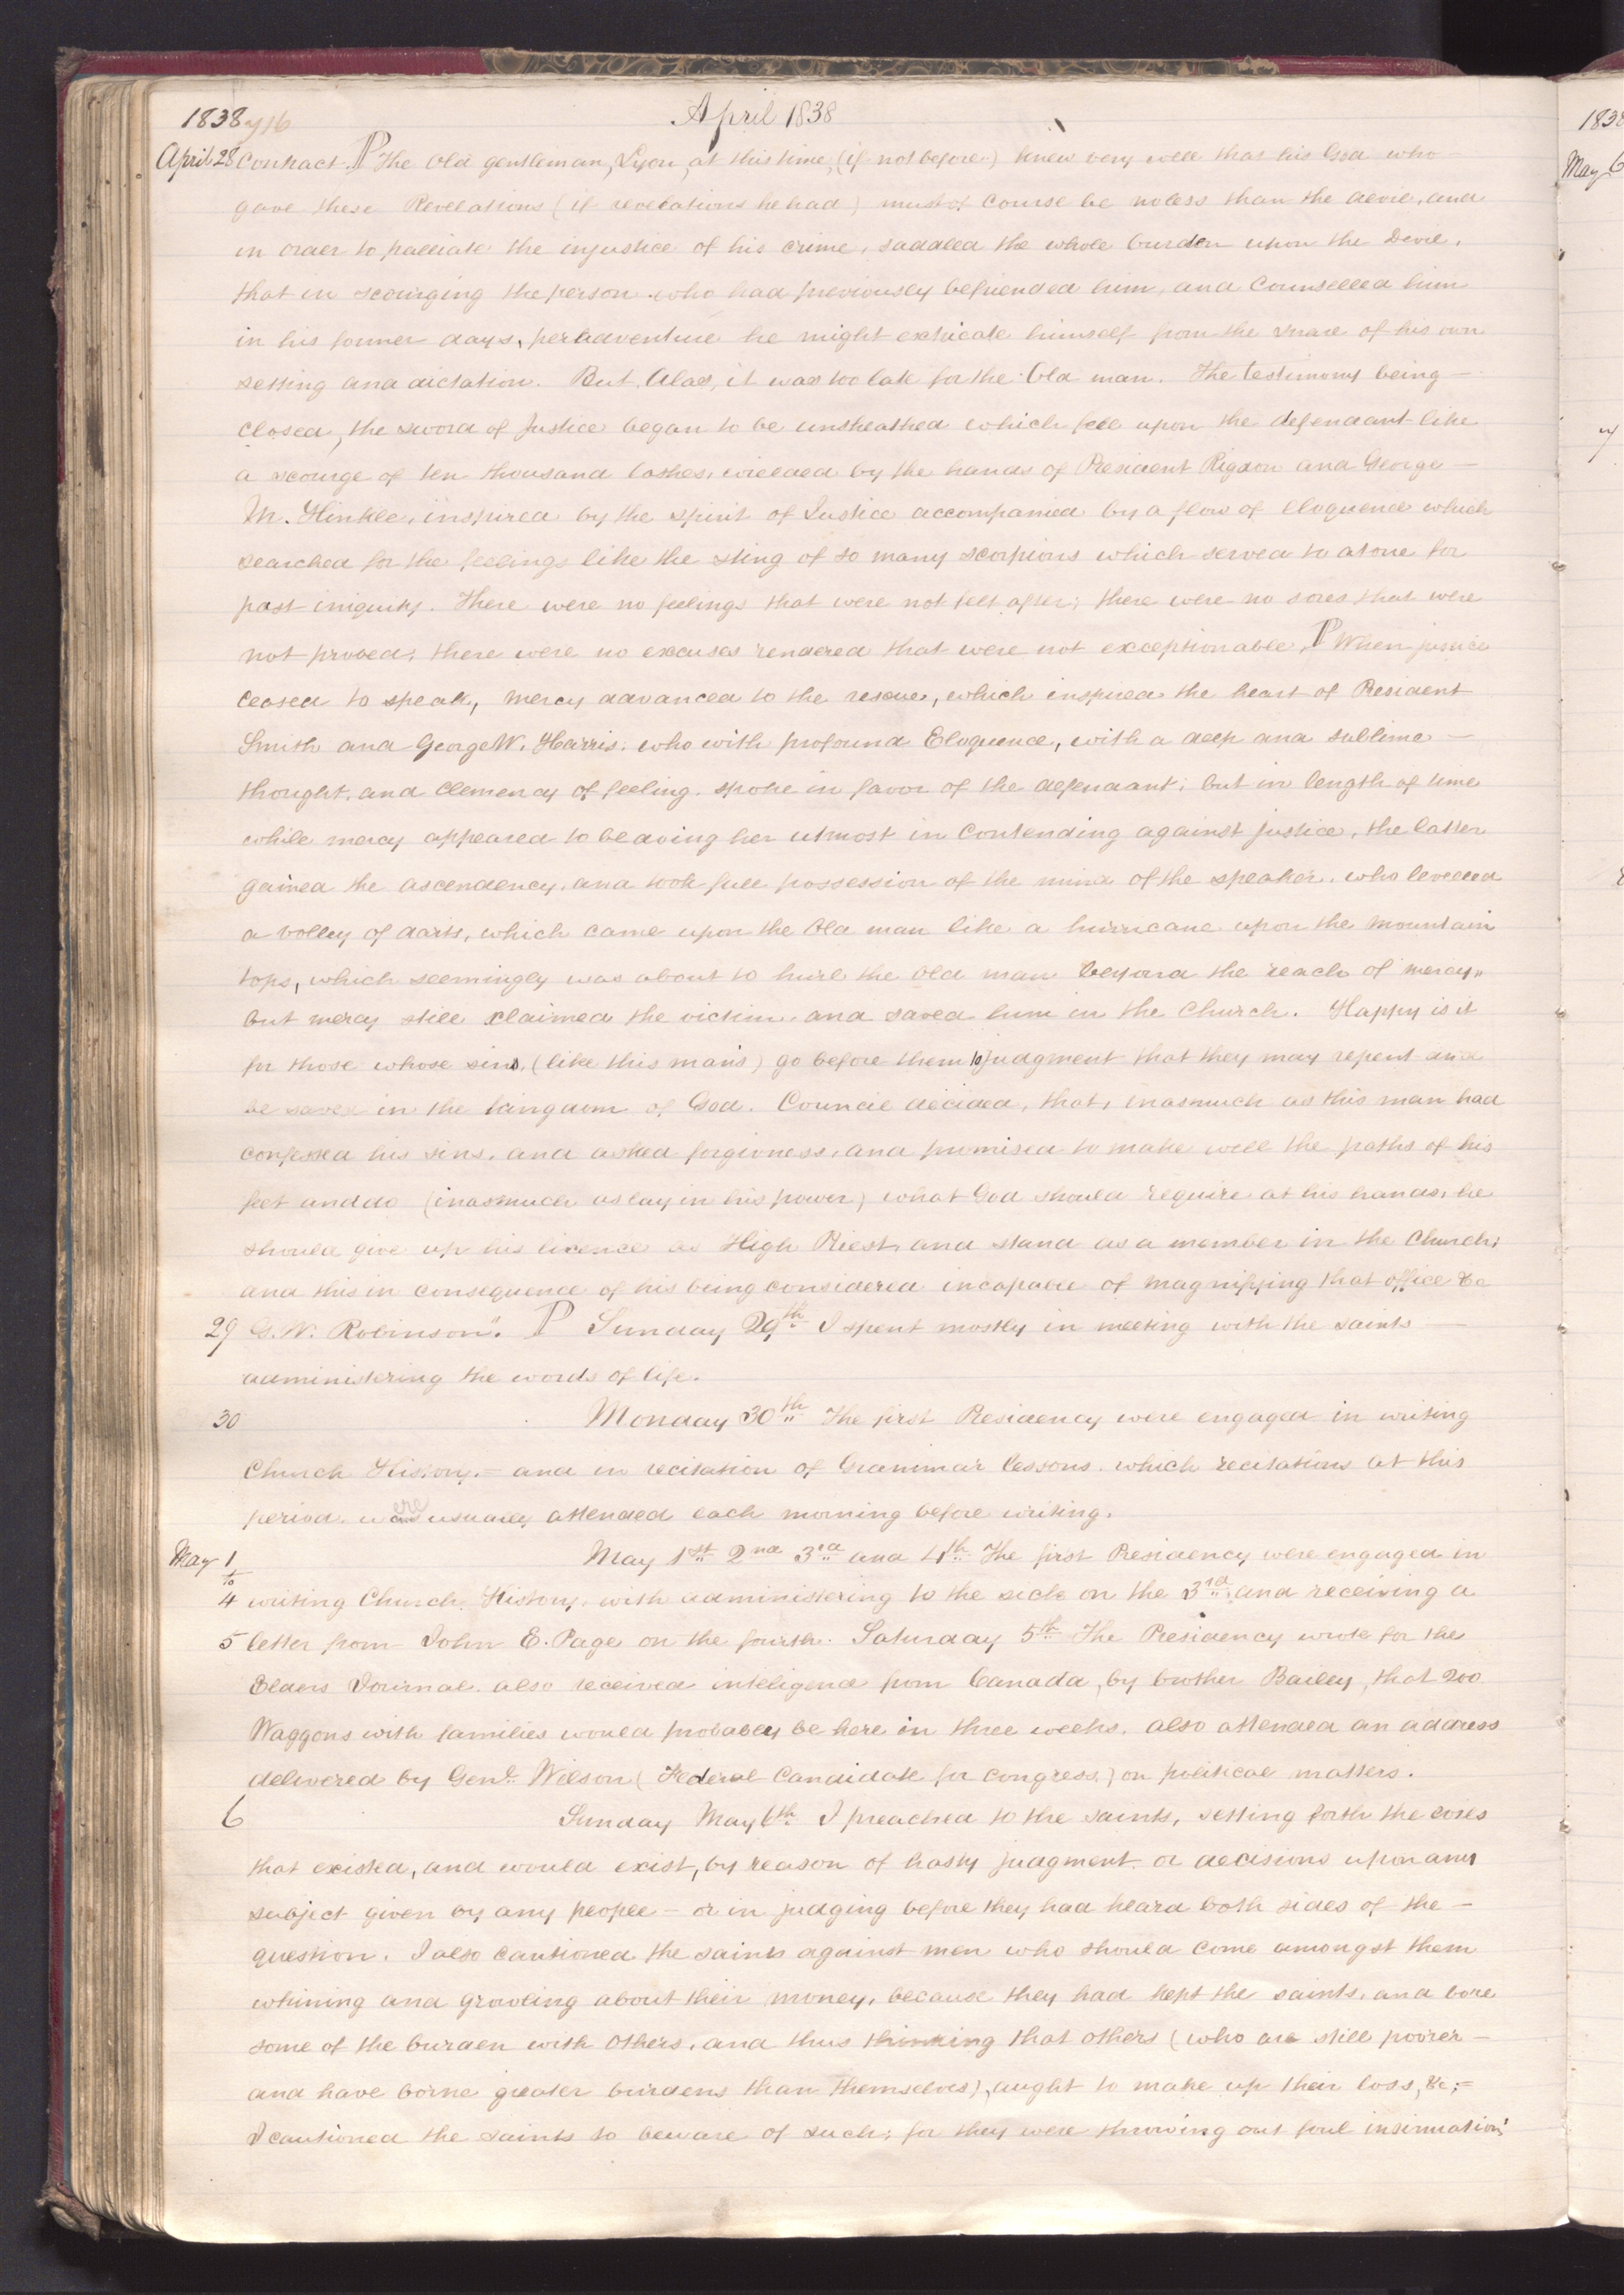 April 1838
1838
April 28 contract. ℙ The Old gentleman, Lyon, at this time, (if not before) knew very well that his God who
gave these Revelations (if revelations he had) must of course be no less than the devil, and
in order to palliate the injustice of his crime, saddled the whole burden upon the Devil,
that in scourging the person who had previously befriended him, and counselled him
in his former days, peradventure he might extricate himself from the snare of his own
setting and dictation. But, Alas, it was too late for the Old man. The testimony being —
closed, the sword of Justice began to be unsheathed which fell upon the defendant like
a scourge of ten thousand lashes, wielded by the hands of President Rigdon and George —
M. Hinkle, inspired by the spirit of Justice accompanied by a flow of eloquence which
searched for the feelings like the sting of so many scorpions which served to atone for
past iniquity. There were no feelings that were not felt after; there were no sores that were
not probed; there were no excuses rendered that were not exceptionable. ℙ When justice
ceased to speak, mercy advanced to the rescue, which inspired the heart of President
Smith and George W. Harris, who with profound Eloquence, with a deep and sublime —
thought, and clemency of feeling, spoke in favor of the defendant; but in length of time
while mercy appeared to be doing her utmost in contending against justice, the latter
gained the ascendency, and took full possession of the mind of the speaker, who levelled
a volley of darts, which came upon the Old man like a hurricane upon the mountain
tops, which seemingly was about to hurl the old man beyond the reach of mercy,,
but mercy still claimed the victim, and saved him in the Church. Happy is it
for those whose sins, (like this mans) go before them to judgment that they may repent and
be saved in the kingdom of God. Council decided, that, inasmuch as this man had
confessed his sins, and asked forgivness, and promised to make well the paths of his
feet and do (inasmuch as lay in his power) what God should require at his hands, he
should give up his licence as High Priest, and stand as a member in the Church;
and this in consequence of his being considered incapable of magnifying that office &c
29 G. W. Robinson". ℙ Sunday 29th I spent mostly in meeting with the saints —
administering the words of life.
30 Monday 30th The first Presidency were engaged in writing
Church History. = and in recitation of Grammar lessons, which recitations at this
period were usually attended each morning before writing.
May 1 May 1st 2nd 3rd and 4th The first Presidency were engaged in
to
4 writing Church History, with administering to the sick on the 3rd and receiving a
5 letter from John E. Page on the fourth. Saturday 5th The Presidency wrote for the
Elders Journal, also received inteligence from Canada, by brother Bailey, that 200
Waggons with families would probably be here in three weeks, also attended an address
delivered by Genl. Wilson (Federal Candidate for congress) on political matters.
6 Sunday May 6th I preached to the saints, setting forth the evils
that existed, and would exist, by reason of hasty judgment or decisions upon any
subject given by any people — or in judging before they had heard both sides of the —
question. I also cautioned the saints against men who should come amongst them
whining and growling about their money, because they had kept the saints, and bore
some of the burden with others, and thus thinking that others (who are still poorer —
and have borne greater burdens than themselves), aught to make up their loss, &c; =
I cautioned the saints to beware of such; for they were throwing out foul insinuations
1838
May 6